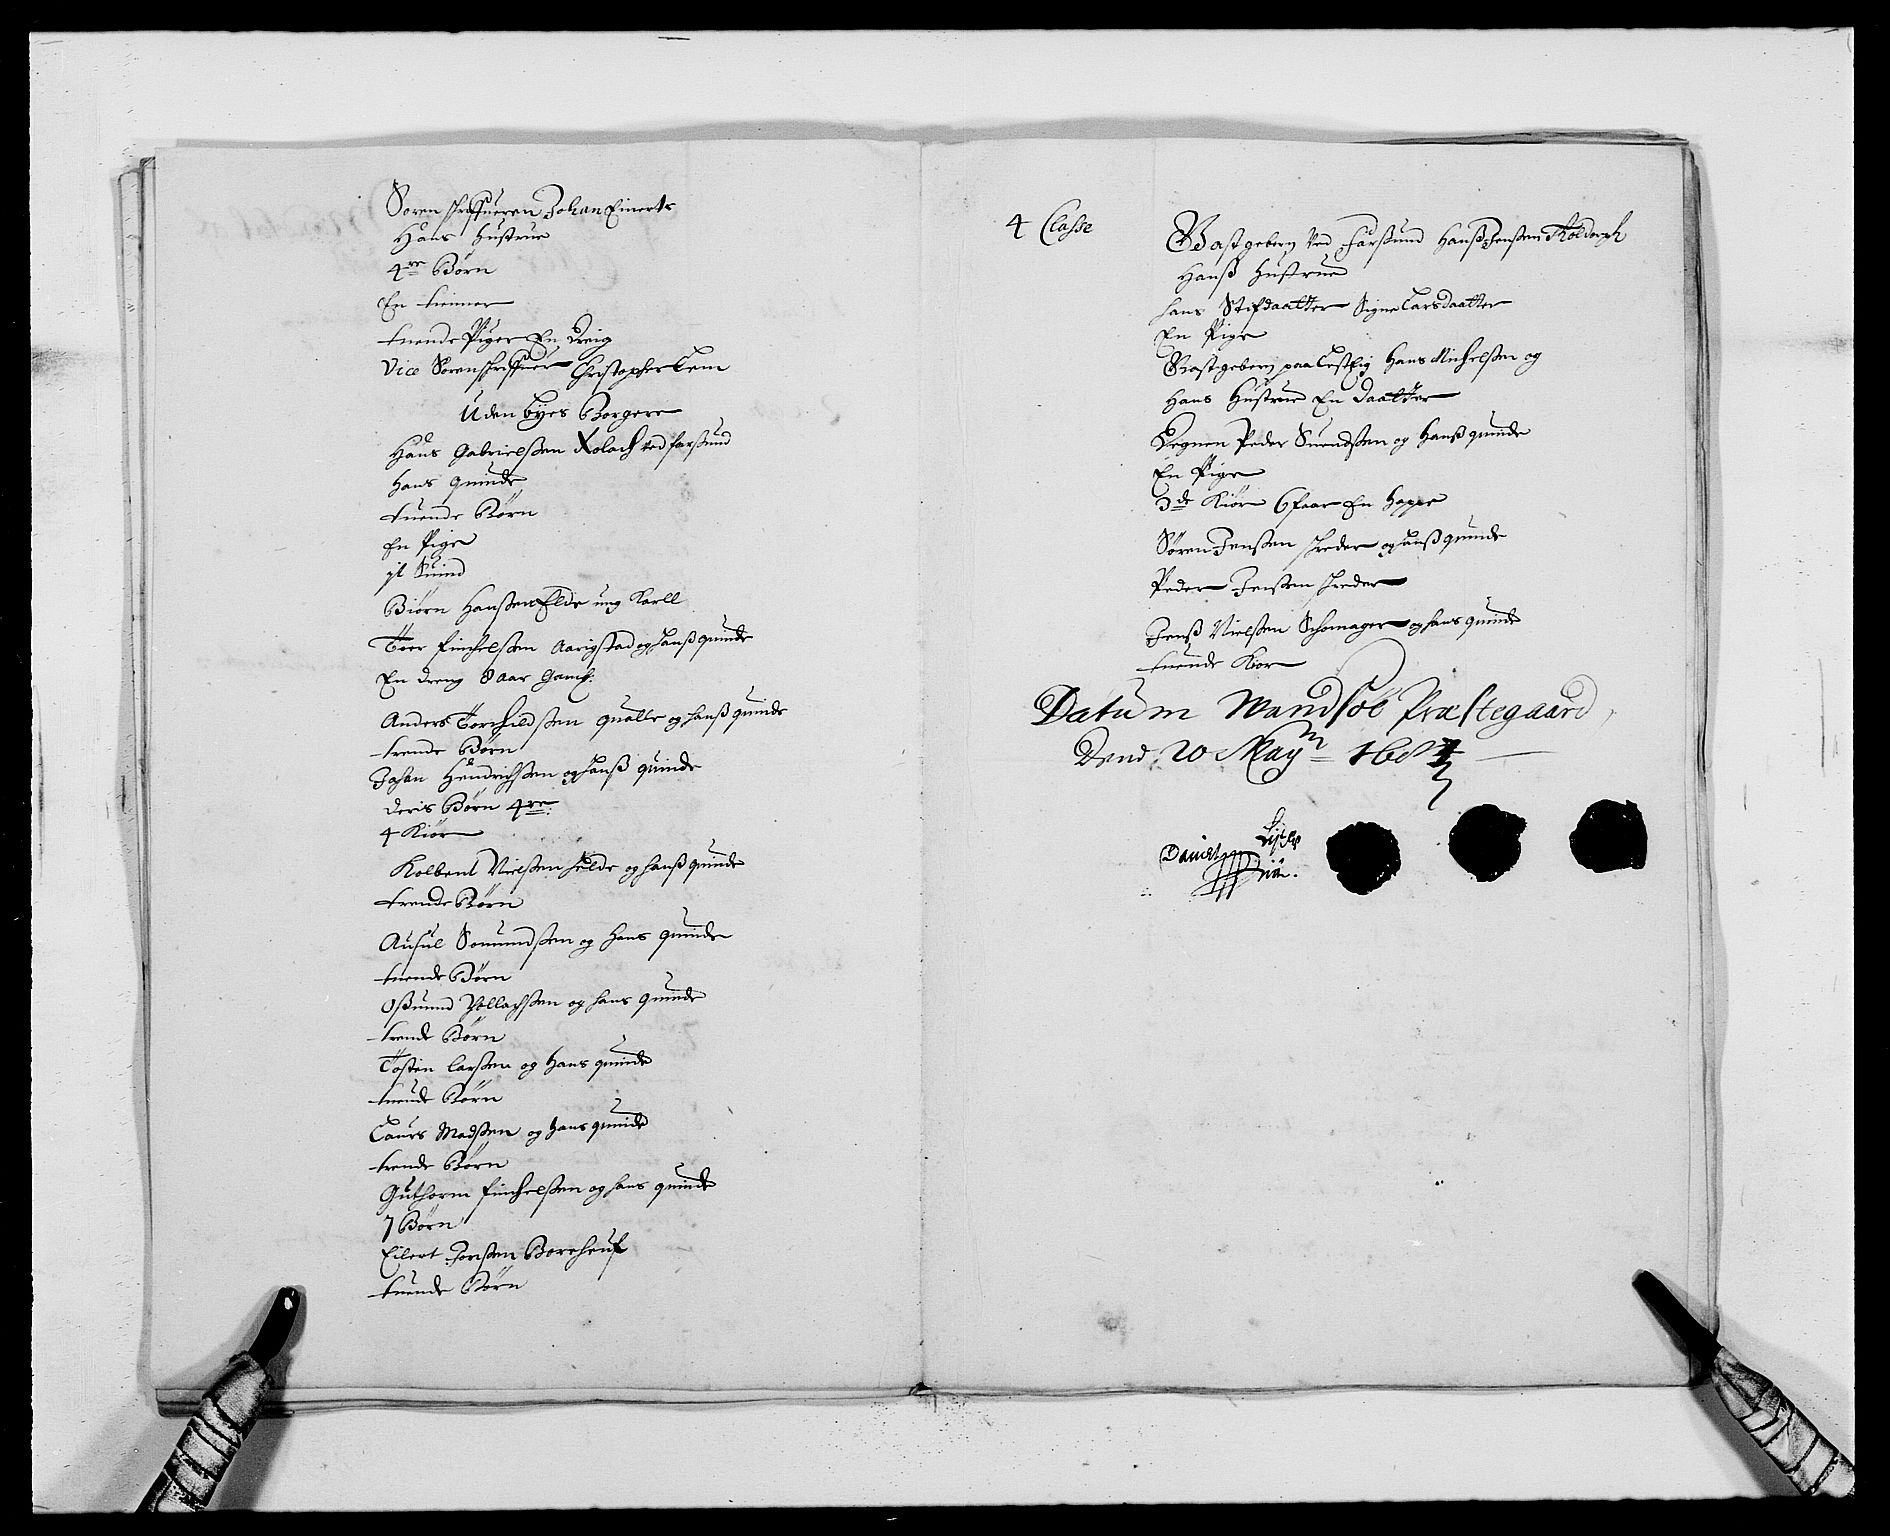 Sorenschriffueren Johan Einerts
Hans Hustrue
4re Börn
En tienner
tuende Piger En Dreig
Vice Sorenschriffuer Christopher Lem
Uden Byes Borgere
Hans Gabrielssen ved farssund
Hans quinde
tuende Börn
En Pige
Suind
Biörn Hanssen Elde ung Karll
Toer finchelssen Aarigstad og hanss quinde
En dreng 8 aar Gaml:
Anders Torchildssen qualle og hanss quinde
trende Börn
Johan Hendrichssen og hanss quinde
deris Börn 4re
4 Kiör
Kolbent Nielssen helde og hanss quinde
trende Börn
Ausul Somundssen og hans quinde
tuende Börn
Ossmund Tollachssen og hans quinde
trende Börn
Tosten Larssen og hans quinde
tuende Börn
Laurs Madssen og hans quinde
trende Börn
Guthorm finchelssen og hans quinde
7 Börn
Eilert Jenssen Boreheuf
tuende Börn
4 Classe
Gastgebern Ved Farssund Hanss Jenssen Koldorph
Hanss Hustrue
hans Stifdaatter Signe Larsdaatter
En Pige
Gastgebern paa Hans Michelssen og
Hans Hustrue En Daatter
Degnen Peder Suendssen og Hanss quinde
En Pige
3de Kiör 6 faar En Hoppe
Sören Jenssen schreder og hanss quinde
Peder Jenssen schreder
Jenss Nielssen Schomager og hans quinde
tuende Kiör
Datum Wandsöe Præstegaard,
Dend 20 Maym 168
Daniel